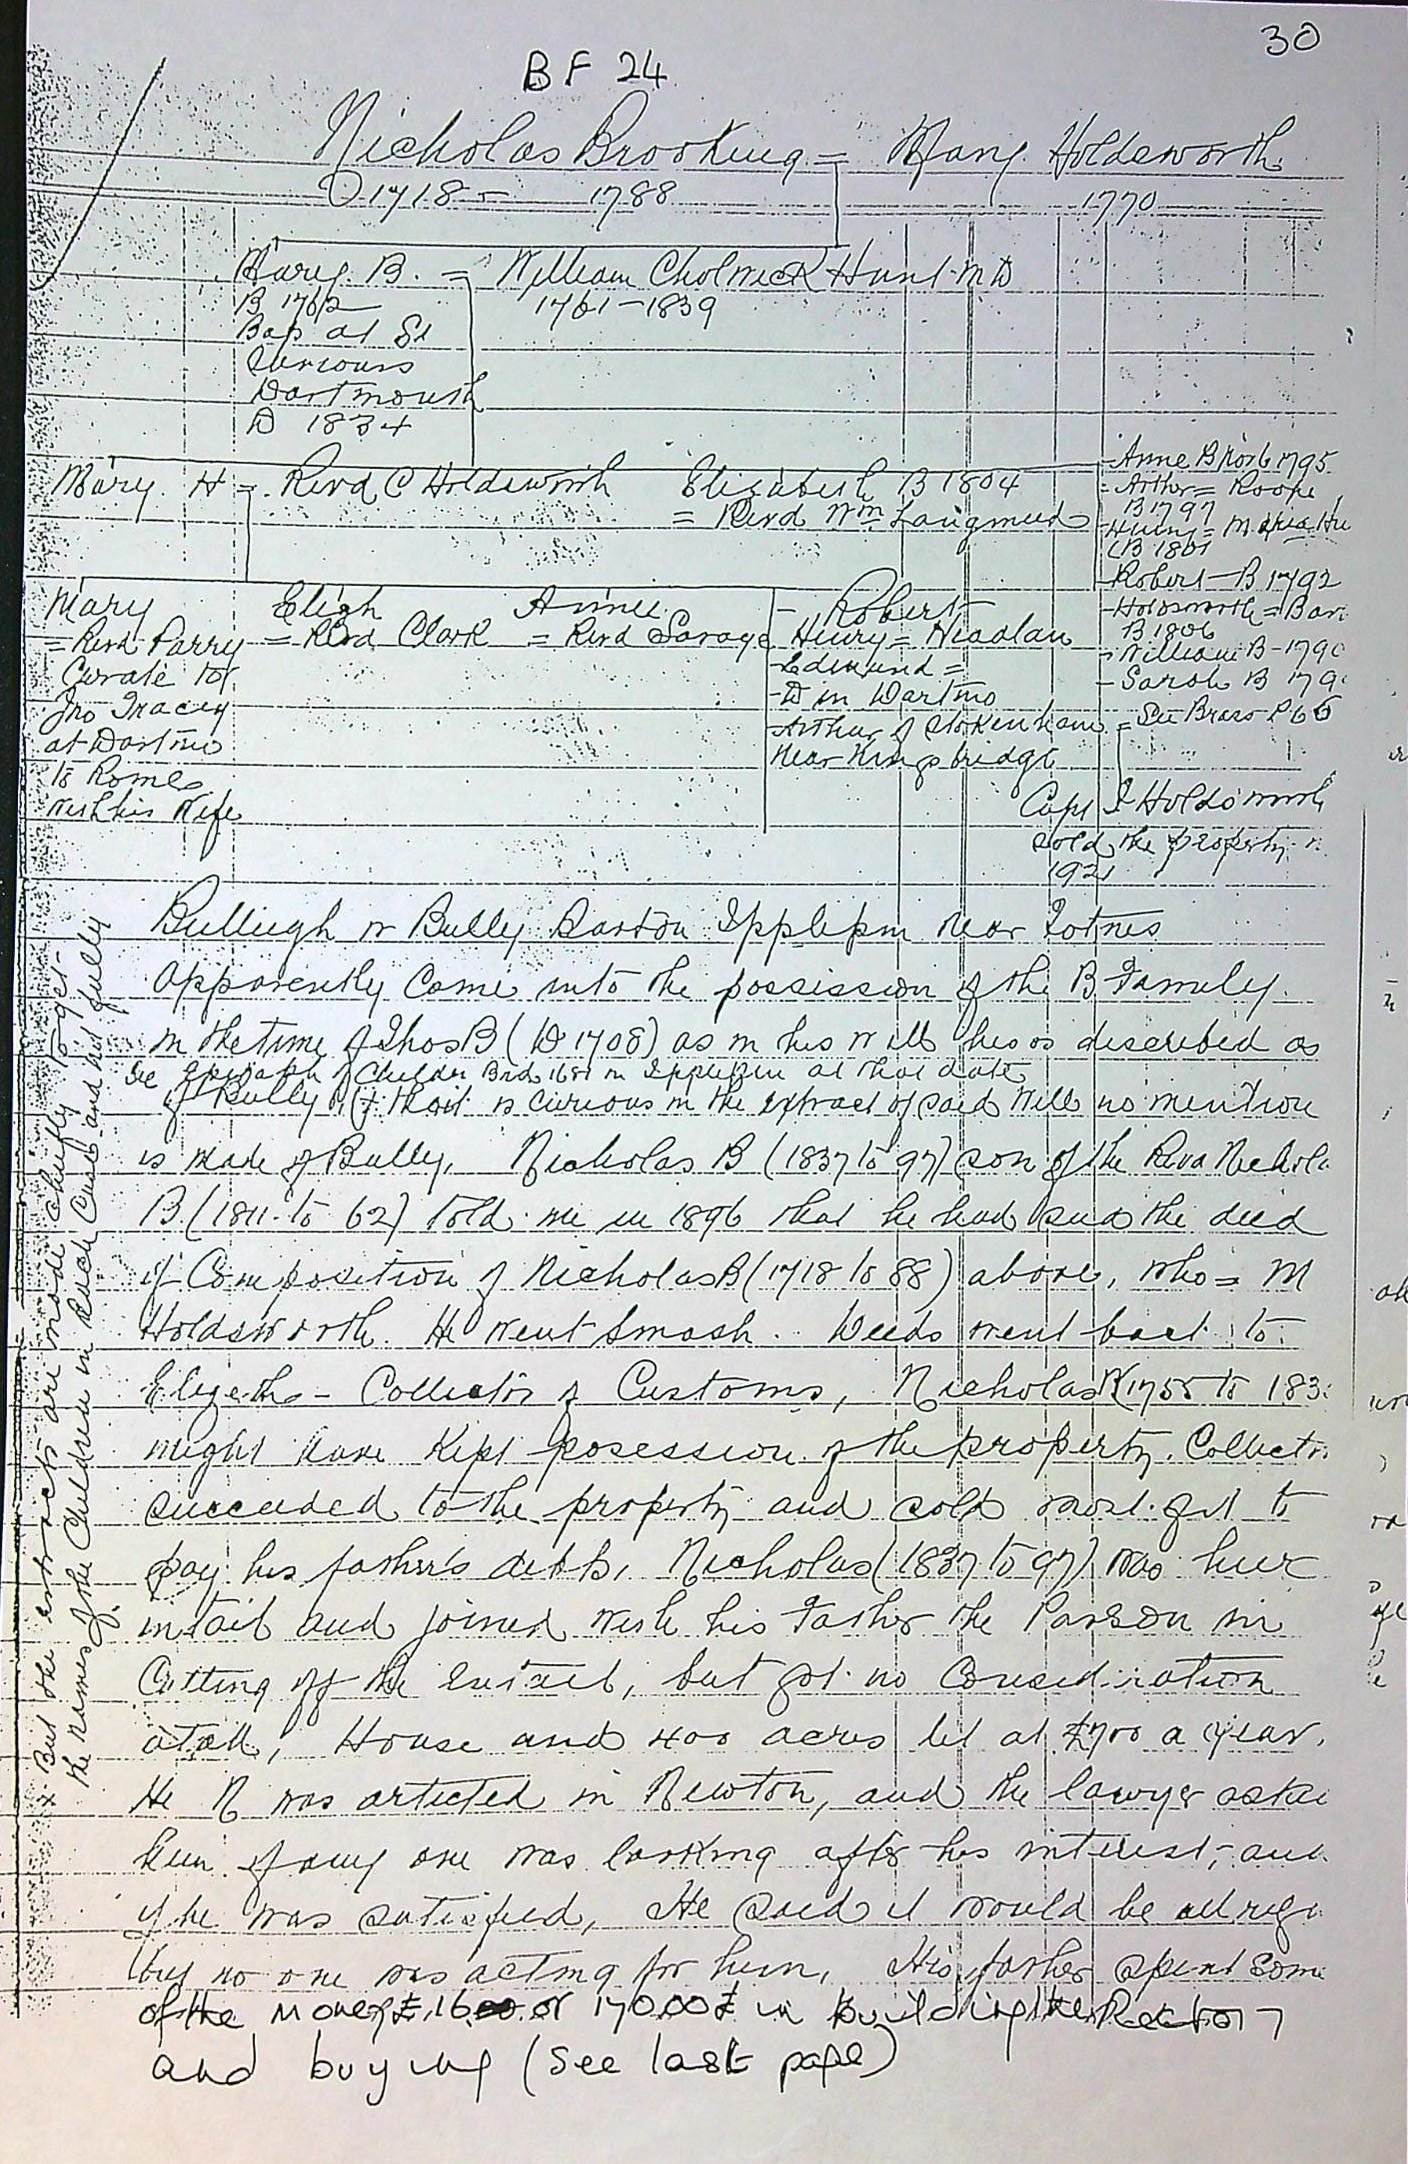 30
BF 24
Nicholas Brooking = Mary Holdsworth
1718 - 1788 1770
Mary B. = William Cholwick Hunt MD
B 1762 1761-1839
Bap at St
Saviours
Dartmouth
D 1834
Mary H = Revd C Holdsworth Elizabeth B 1804
= Revd Wm Laugmead
Anne B 1795
Arthur = Roope
B 1797
Henry = Maria Hu
B 1801
Robert B 1792
Holdsworth = Bar
B 1806
William B 1790
Sarah B 179
See Brass P 66
Mary Elizh Annie
= Revd Parry = Revd Clark = Revd Savage
Curate to
Jno Tracey
at Dartmo
to Rome
with his Wife
- Robert
Henry = Headlan
- Edmund =
- D in Dartmo
- Arthur of Stokenham
near Kingsbridge
Capt Holdsworth
sold the property
1921
Bulleigh or Bully Barton Ipplepen near Totnes
Apparently came into the possession of the B Family
in the time of Thos B (D 1708) as in his will he is described as
See of Childn in Ipplepen at that date
of Bully, + that is curious in the extract of said Will no mention
is made of Bully. Nicholas B (1837 to 97) son of the Revd Nichola
B (1811 to 62) told me in 1896 that he had the deed
of Composition of Nicholas B (1718 to 88) above, who = M
Holdsworth. He went Smash. Deeds went back to
Elizeth - Collector of Customs, Nicholas (1755 to 183
might have Kept posession of the property. Collectr
succeeded to the property and sold most of it to
pay his father's debts, Nicholas (1837 to 97) was heir
in tail and joined with his Father the Parson in
Cutting off the Entail, but got no Consideration
at all, House and 400 acres let at £700 a year.
He N was articled in Newton, and the lawyer aske
him if any one was looking after his interest, and
if he was satisfied, He said it would be all righ
but no one was acting for him, His father spent Some
of the money £ 16 or 17000£ in building the Rectory
and buying (see last page)
x But the extracts are made chiefly to get
the names of the Children in each Case and not fully